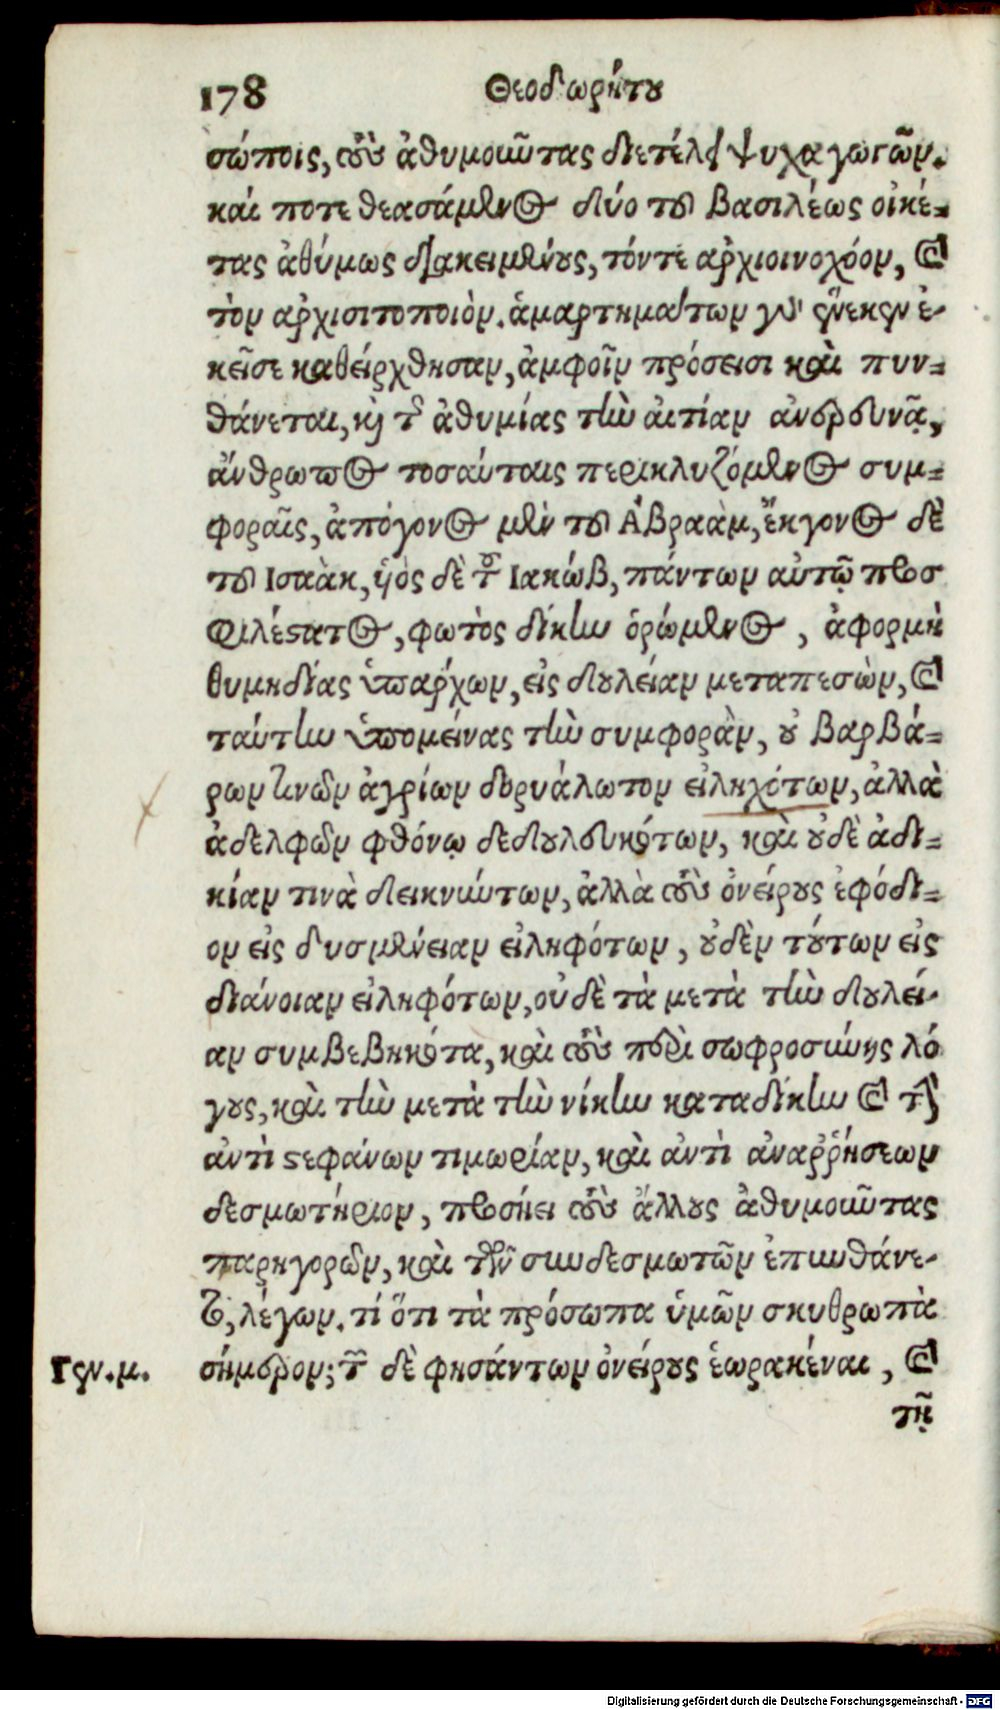 178 Θεοδωρήτου
σώποις, τοὺς ἀθυμοῦντας διετέλει ψυχαγωγῶν.
καί ποτε θεασάμενος δύο τοῦ βασιλέως οἰκέ-
τας ἀθύμως διακειμένους, τόν τε ἀρχιοινοχόον, καὶ
τὸν ἀρχισιτοποιὸν. ἁμαρτημάτων γὰρ ἕνεκεν ἐ-
κεῖσε καθείρχθησαν, ἀμφοῖν πρόσεισι καὶ πυν-
θάνεται, καὶ τῆς ἀθυμίας τὴν αἰτίαν ἀνερευνᾷ,
ἄνθρωπος τοσαύταις περικλυζόμενος συμ-
φοραῖς, ἀπόγονος μὲν τοῦ Ἀβραὰμ, ἔκγονος δὲ
τοῦ Ισαὰκ, ὑὸς δὲ τοῦ Ιακώβ, πάντων αὐτῷ προσ
φιλέστατος, φωτὸς δίκην ὁρώμενος, ἀφορμὴ
θυμηδίας ὑπάρχων, εἰς δουλείαν μεταπεσὼν, καὶ
ταύτην ὑπομείνας τὴν συμφορὰν, οὐ βαρβά-
ρων τινῶν ἀγρίων δορυάλωτον εἰληχότων, ἀλλὰ
ἀδελφῶν φθόνῳ δεδουλευκότων, καὶ οὐδὲ ἀδι-
κίαν τινὰ δεικνύντων, ἀλλὰ τοὺς ὀνείρους ἐφόδι-
ον εἰς δυσμένειαν εἰληφότων, οὐδὲν τούτων εἰς
διάνοιαν εἰληφότων, οὐδὲ τὰ μετὰ τὴν δουλεί-
αν συμβεβηκότα, καὶ τοὺς περὶ σωφροσύνης λό
γους, καὶ τὴν μετὰ τὴν νίκην καταδίκην καὶ τὴν
ἀντὶ στεφάνων τιμωρίαν, καὶ ἀντὶ ἀναῤῥήσεων
δεσμωτήριον, προσήει τοὺς ἄλλους ἀθυμοῦντας
παρηγορῶν, καὶ τῶν συνδεσμωτῶν ἐπυνθάνε-
το, λέγων. τί ὅτι τὰ πρόσωπα ὑμῶν σκυθρωπὰ
Γεν. μ. σήμερον; τῶν δὲ φησάντων ὀνείρους ἑωρακέναι, καὶ
τῇ
Digitalisierung gefördert durch die Deutsche Forschungsgemeinschaft - DFG